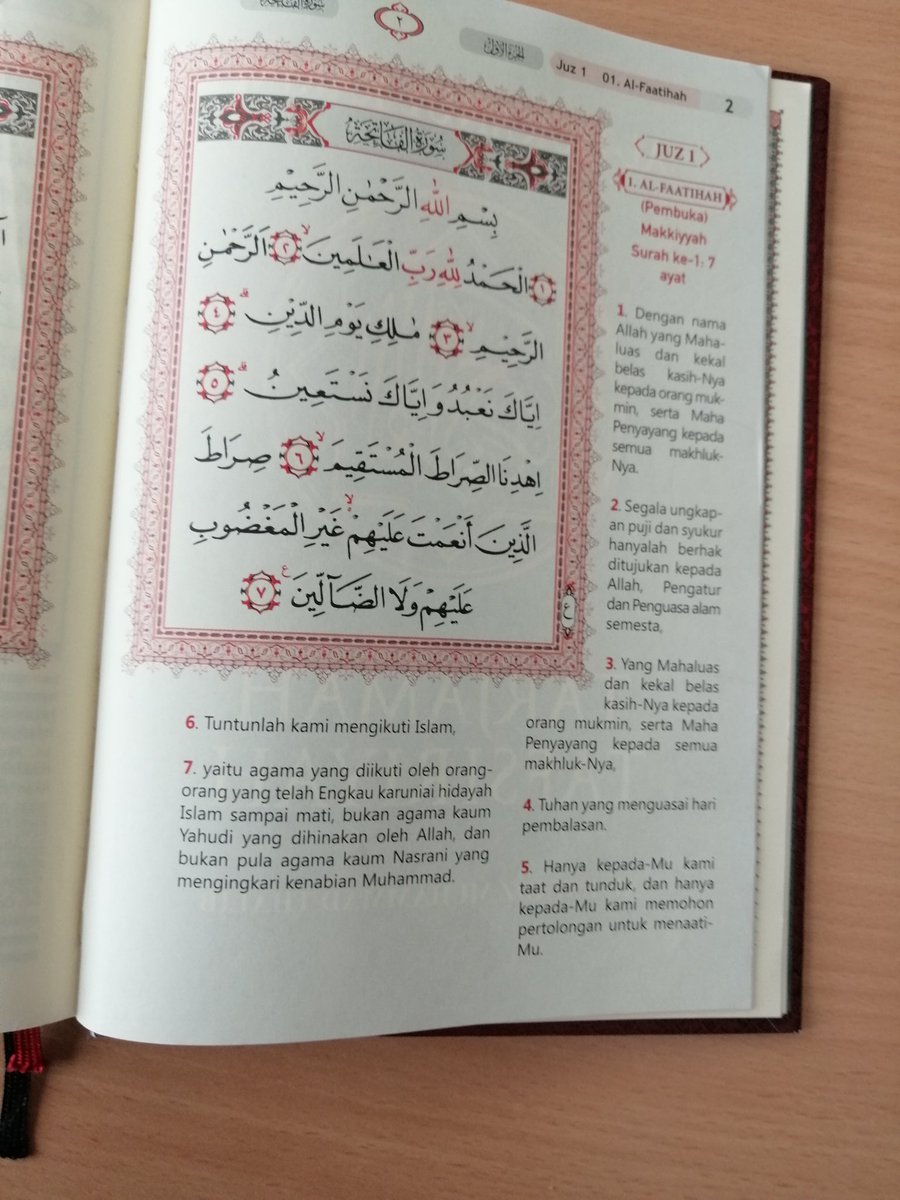 سورة الفاتحة
٢
الجزء الاول
Juz 1 01. Al-Faatihah
2
سُوْرَةُ الْفَاتِحَةِ
بِسْمِ اللّٰهِ الرَّحْمٰنِ الرَّحِيْمِ
١ اَلْحَمْدُ لِلّٰهِ رَبِّ الْعٰلَمِيْنَۙ ٢ اَلرَّحْمٰنِ
الرَّحِيْمِۙ ٣ مٰلِكِ يَوْمِ الدِّيْنِۗ ٤
اِيَّاكَ نَعْبُدُ وَاِيَّاكَ نَسْتَعِيْنُۗ ٥
اِهْدِنَا الصِّرَاطَ الْمُسْتَقِيْمَۙ ٦ صِرَاطَ
الَّذِيْنَ أَنْعَمْتَ عَلَيْهِمْۙ غَيْرِ الْمَغْضُوْبِ
عَلَيْهِمْ وَلَا الضَّاۤلِّيْنَࣖ ٧
ع
JUZ 1
1. AL-FAATIHAH
(Pembuka)
Makkiyyah
Surah ke-1: 7
ayat
1. Dengan nama
Allah yang Maha-
luas dan kekal
belas kasih-Nya
kepada orang muk-
min, serta Maha
Penyayang kepada
semua makhluk-
Nya.
2. Segala ungkap-
an puji dan syukur
hanyalah berhak
ditujukan kepada
Allah, Pengatur
dan Penguasa alam
semesta,
3. Yang Mahaluas
dan kekal belas
kasih-Nya kepada
orang mukmin, serta Maha
Penyayang kepada semua
makhluk-Nya,
4. Tuhan yang menguasai hari
pembalasan.
5. Hanya kepada-Mu kami
taat dan tunduk, dan hanya
kepada-Mu kami memohon
pertolongan untuk menaati-
Mu.
6. Tuntunlah kami mengikuti Islam,
7. yaitu agama yang diikuti oleh orang-
orang yang telah Engkau karuniai hidayah
Islam sampai mati, bukan agama kaum
Yahudi yang dihinakan oleh Allah, dan
bukan pula agama kaum Nasrani yang
mengingkari kenabian Muhammad.